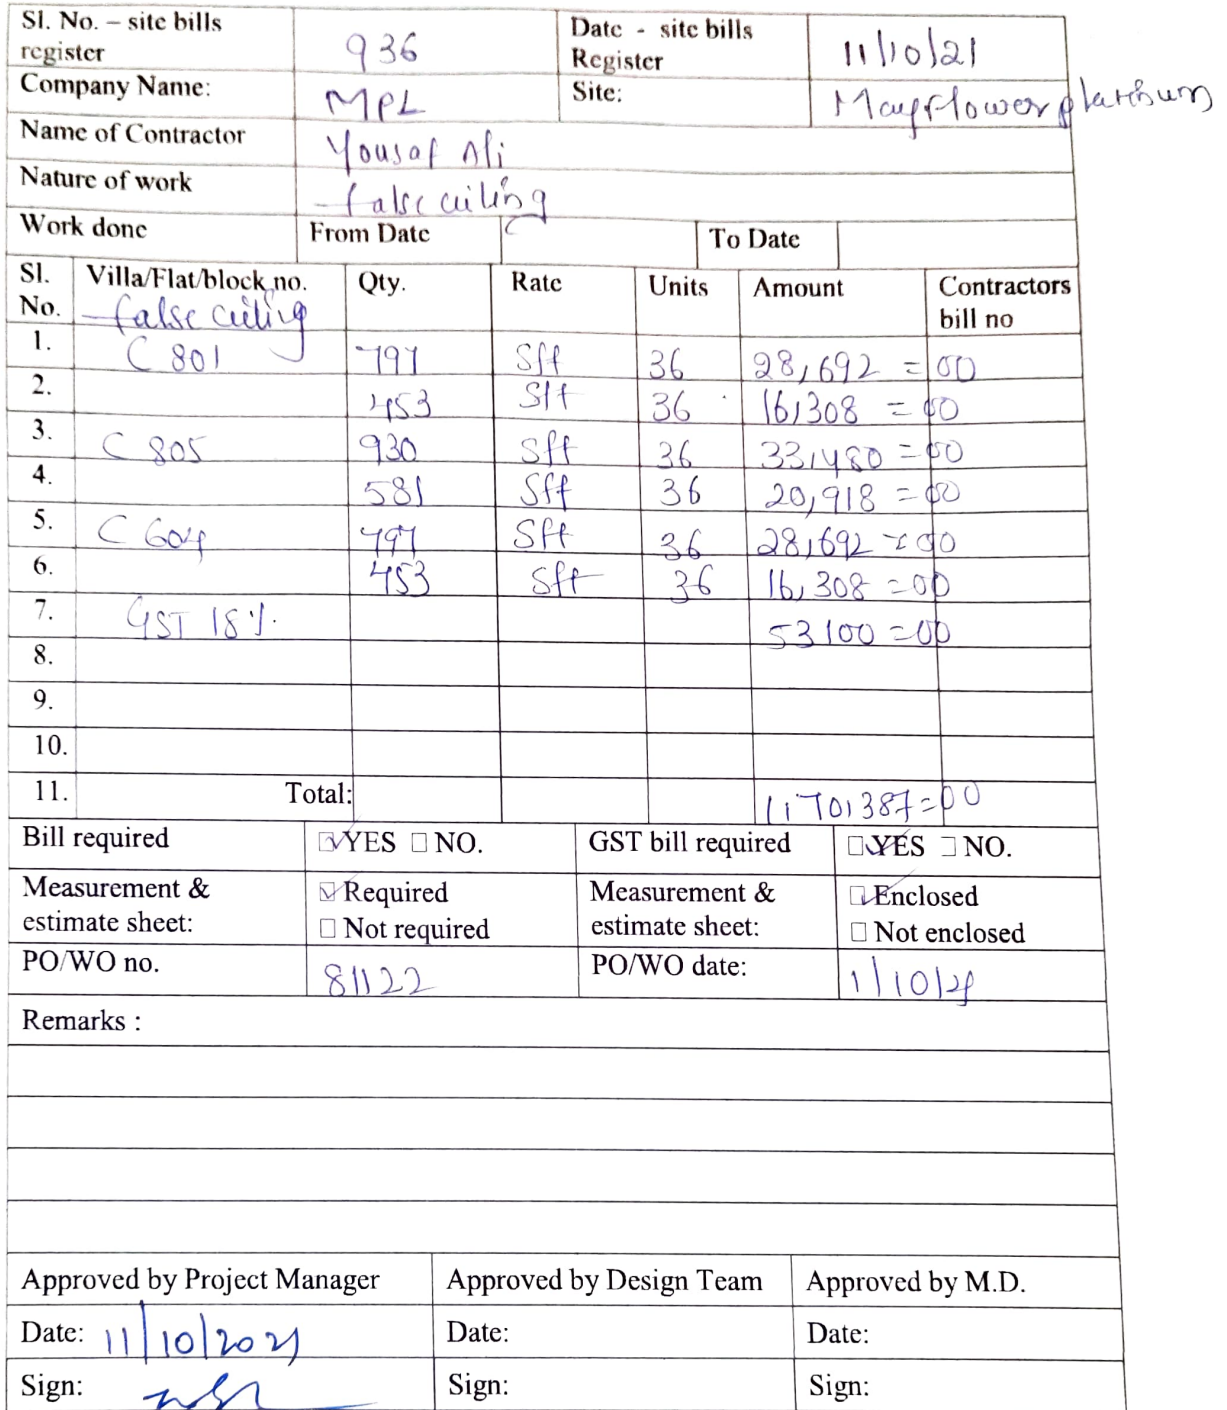 Sl. No. – site bills register 936 Date - site bills Register 11/10/21
Company Name: MPL Site: Mayflower platinum
Name of Contractor Yousaf Ali
Nature of work false ceiling
Work done From Date To Date
Sl. No. Villa/Flat/block no. Qty. Rate Units Amount Contractors bill no
false ceiling
1. C 801 797 Sft 36 28,692 = 00
2. 453 Sft 36 16,308 = 00
3. C 805 930 Sft 36 33,480 = 00
4. 581 Sft 36 20,918 = 00
5. C 604 797 Sft 36 28,692 = 00
6. 453 Sft 36 16,308 = 00
7. GST 18%. 53100 = 00
8.
9.
10.
11. Total: 1,70,387 = 00
Bill required ☑ YES ☐ NO. GST bill required ☑ YES ☐ NO.
Measurement & estimate sheet: ☑ Required ☐ Not required Measurement & estimate sheet: ☑ Enclosed ☐ Not enclosed
PO/WO no. 81122 PO/WO date: 1/10/21
Remarks :
Approved by Project Manager Approved by Design Team Approved by M.D.
Date: 11/10/2021 Date: Date:
Sign: Sign: Sign: